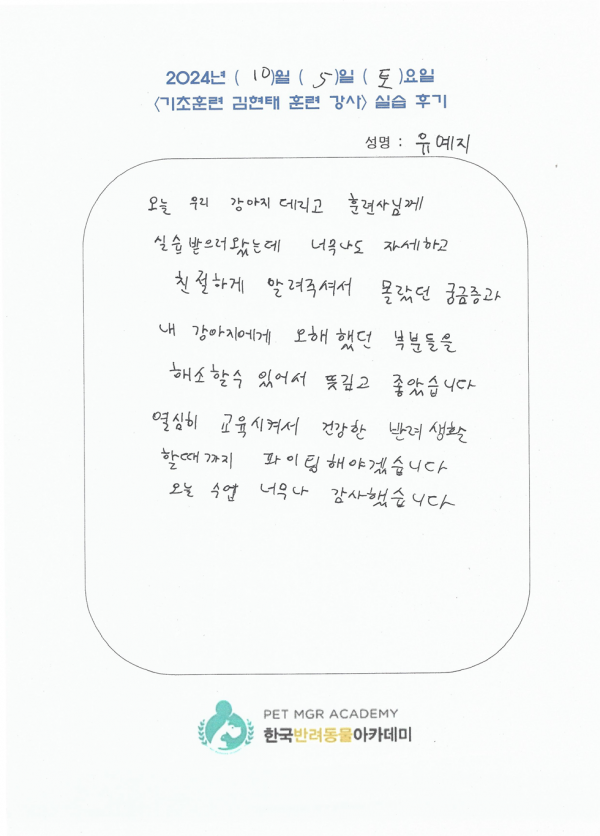 2024년 ( 10 )월 ( 5 )일 ( 토 )요일
<기초훈련 김현태 훈련 강사> 실습 후기
성명 : 유예지
오늘 우리 강아지 데리고 훈련사님께
실습 받으러왔는데 너무나도 자세하고
친절하게 알려주셔서 몰랐던 궁금증과
내 강아지에게 오해했던 부분들을
해소할수 있어서 뜻깊고 좋았습니다
열심히 교육시켜서 건강한 반려생활
할때까지 파이팅해야겠습니다
오늘 수업 너무나 감사했습니다
PET MGR ACADEMY
한국반려동물아카데미